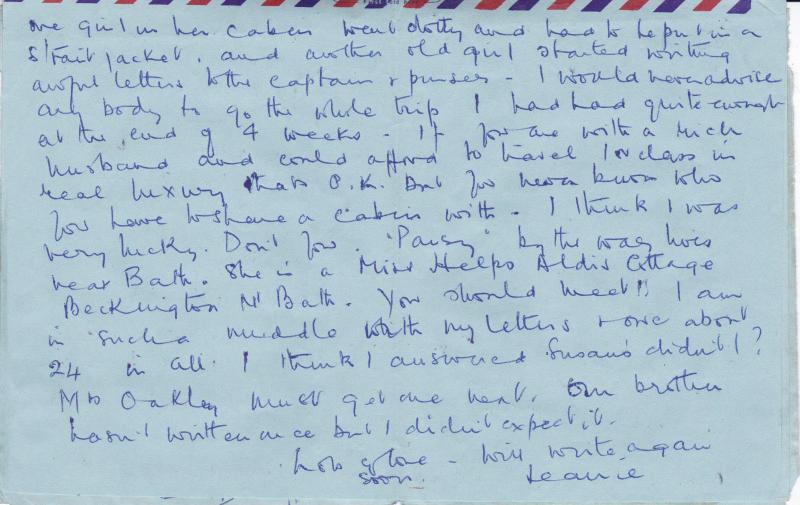 one girl in her cabin went dotty and had to be put in a
strait jacket. and another old girl started writing
awful letters to the captain & purser - I would never advise
any body to go the whole trip I had had quite enough
at the end of 4 weeks - If you are with a rich
husband and could afford to travel 1st class in
real luxury thats O.K. but you never know who
you have to share a cabin with. I think I was
very lucky. Don't you. "Pansy" by the way lives
near Bath. She is a Miss Helps Aldis Cottage
Beckington Nr Bath. You should meet!! I am
in such a muddle with my letters & owe about
24 in all. I think I answered Susan's didn't I?
Mrs Oakley must get one next. Our brother
hasn't written once but I didn't expect it.
Lots of love - will write again
soon. Jeanie